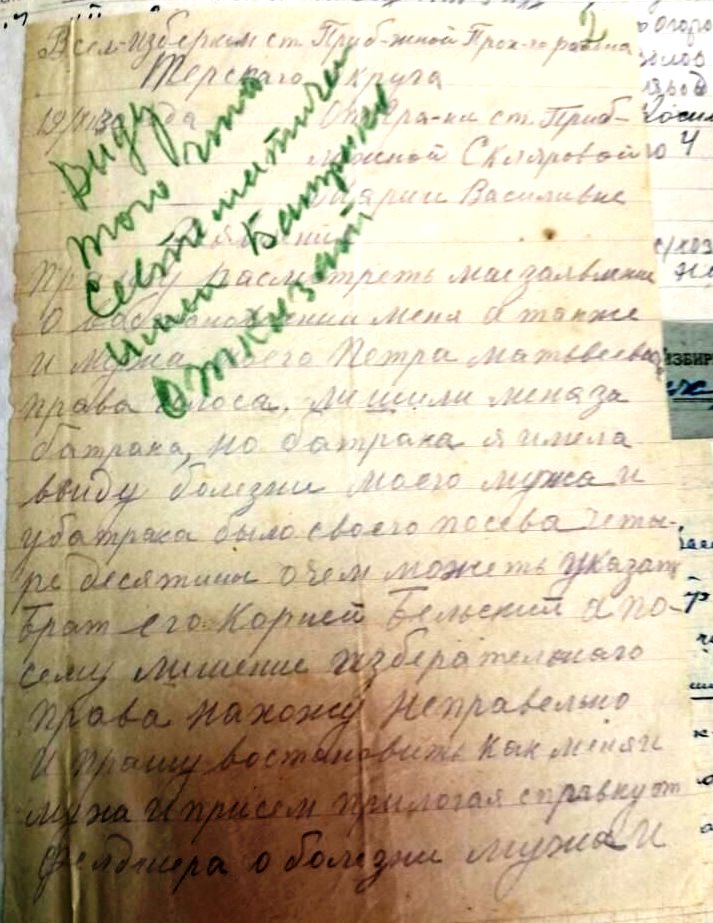 2
Всел-изберком ст. Приб-жной Прох-го района
Терскаго округа
От гра-ки ст. Приб-
лижной Скляровой
Марии Василивне
Заявление
Прошу расмотреть мое заявление
о востоновлении меня а также
и мужа моего Петра Матьвеевича
права голоса, лишили меня за
батрака, но батрака я имела
ввиду болезни моего мужа и
у батрака было своего посева четы-
ре десятины очем можеть указать
брат его Корней Бельский а по-
сему лишение избера­тельнаго
права нахожу неправельно
и прашу востановить как меня и
мужа и присем прилогая справку от
фелдшера о болезни мужа и
Виду
того что
систематичеи
имел Батрака
отказать